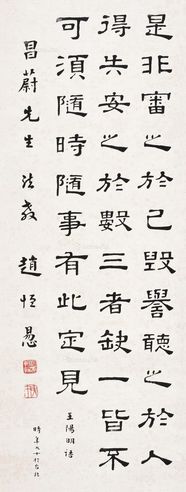 是非審之於己毀譽聽之於人
得失安之於數三者缺一皆不
可須隨時隨事有此定見
王陽明語
昌蔚先生法教
趙恒惖
時年九十於台北